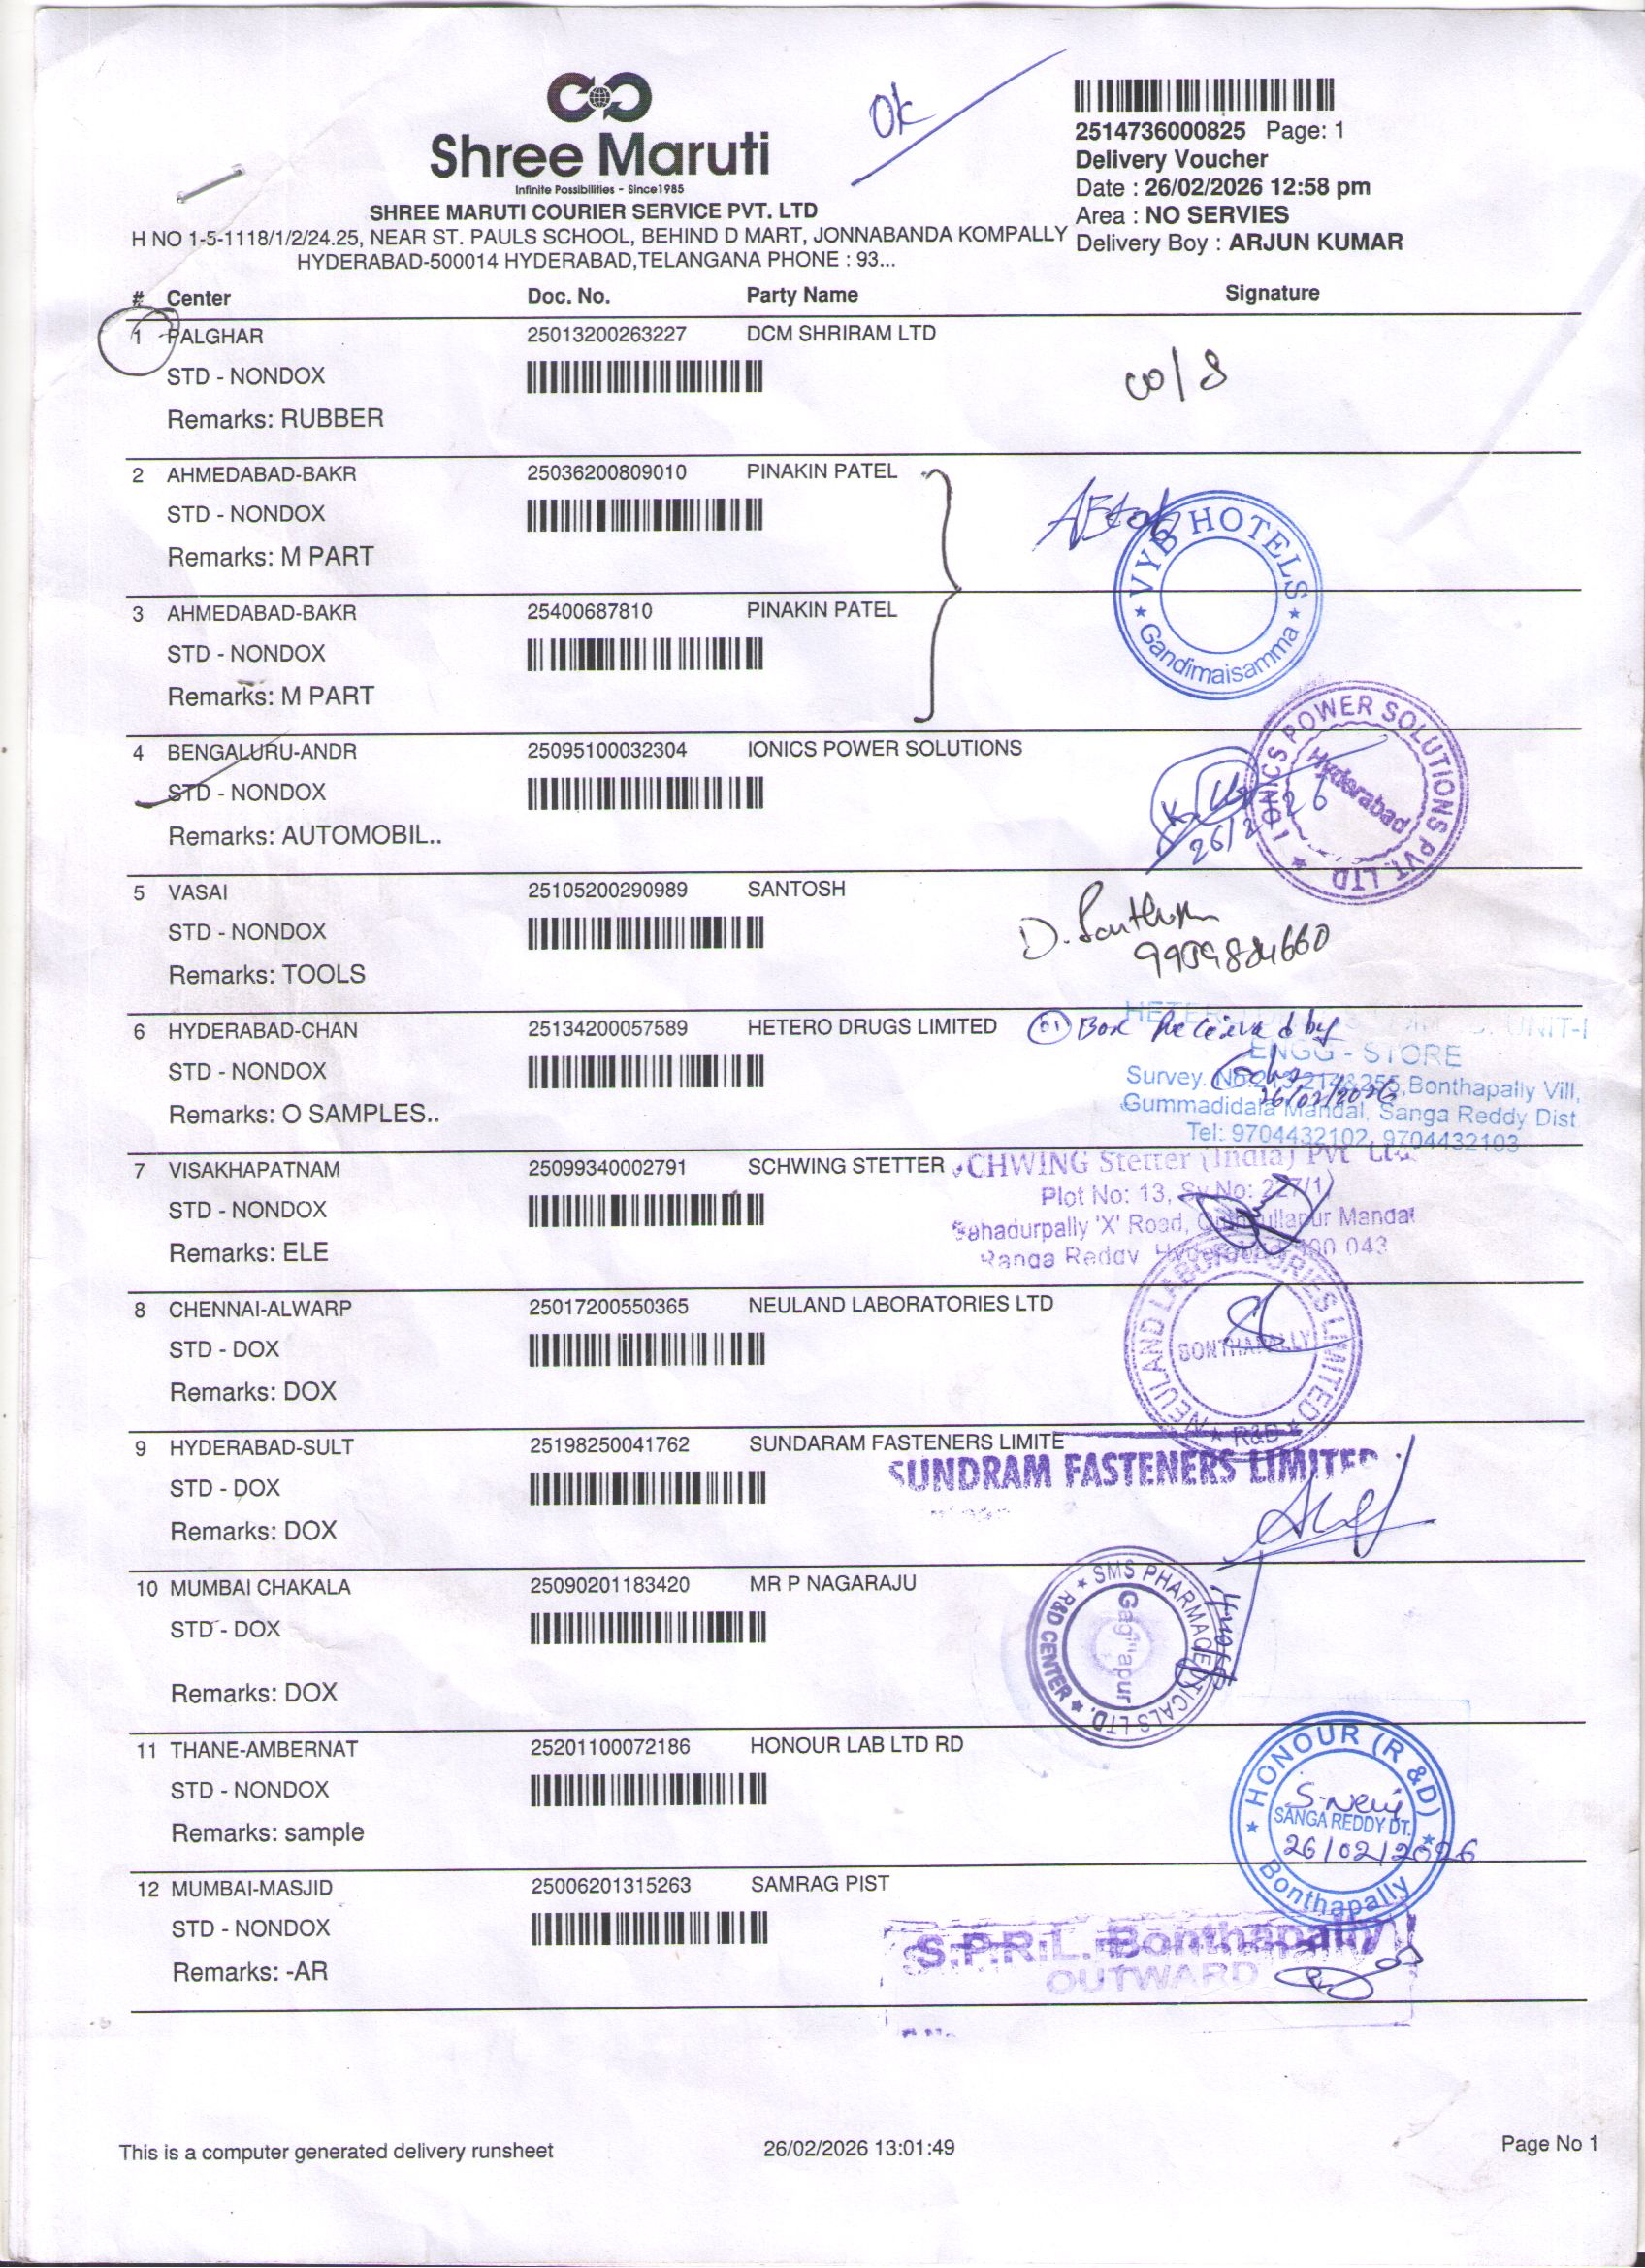 Ok
Shree Maruti
Infinite Possibilities - Since1985
SHREE MARUTI COURIER SERVICE PVT. LTD
H NO 1-5-1118/1/2/24.25, NEAR ST. PAULS SCHOOL, BEHIND D MART, JONNABANDA KOMPALLY
HYDERABAD-500014 HYDERABAD,TELANGANA PHONE : 93...
2514736000825 Page: 1
Delivery Voucher
Date : 26/02/2026 12:58 pm
Area : NO SERVIES
Delivery Boy : ARJUN KUMAR
# Center Doc. No. Party Name Signature
1 PALGHAR 25013200263227 DCM SHRIRAM LTD
STD - NONDOX
Remarks: RUBBER
2 AHMEDABAD-BAKR 25036200809010 PINAKIN PATEL
STD - NONDOX
Remarks: M PART
VYB HOTELS
Gandimaisamma
3 AHMEDABAD-BAKR 25400687810 PINAKIN PATEL
STD - NONDOX
Remarks: M PART
4 BENGALURU-ANDR 25095100032304 IONICS POWER SOLUTIONS
STD - NONDOX
Remarks: AUTOMOBIL..
IONICS POWER SOLUTIONS PVT. LTD
Hyderabad
5 VASAI 25105200290989 SANTOSH
STD - NONDOX
Remarks: TOOLS
6 HYDERABAD-CHAN 25134200057589 HETERO DRUGS LIMITED
STD - NONDOX
Remarks: O SAMPLES..
01 Box Received by
UNIT-I
ENGG - STORE
Survey. No:213,214&255,Bonthapally Vill,
26/02/2026
Gummadidala Mandal, Sanga Reddy Dist
Tel: 9704432102, 9704432103
7 VISAKHAPATNAM 25099340002791 SCHWING STETTER
STD - NONDOX
Remarks: ELE
CHWING Stetter (India) Pvt Ltd.
Plot No: 13, Sy.No: 227/1,
Bahadurpally 'X' Road, Quthbullapur Mandal
Ranga Reddy, Hyderabad
8 CHENNAI-ALWARP 25017200550365 NEULAND LABORATORIES LTD
STD - DOX
Remarks: DOX
NEULAND LABORATORIES LIMITED
BONTHAPALLY
R&D
9 HYDERABAD-SULT 25198250041762 SUNDARAM FASTENERS LIMITE
STD - DOX
Remarks: DOX
SUNDRAM FASTENERS LIMITED
10 MUMBAI CHAKALA 25090201183420 MR P NAGARAJU
STD - DOX
Remarks: DOX
SMS PHARMACEUTICALS LTD.
R&D CENTER
11 THANE-AMBERNAT 25201100072186 HONOUR LAB LTD RD
STD - NONDOX
Remarks: sample
HONOUR (R &D)
SANGA REDDY DT.
26/02/2026
Bonthapally
12 MUMBAI-MASJID 25006201315263 SAMRAG PIST
STD - NONDOX
Remarks: -AR
S.P.R.L. Bonthapally
OUTWARD
This is a computer generated delivery runsheet 26/02/2026 13:01:49 Page No 1